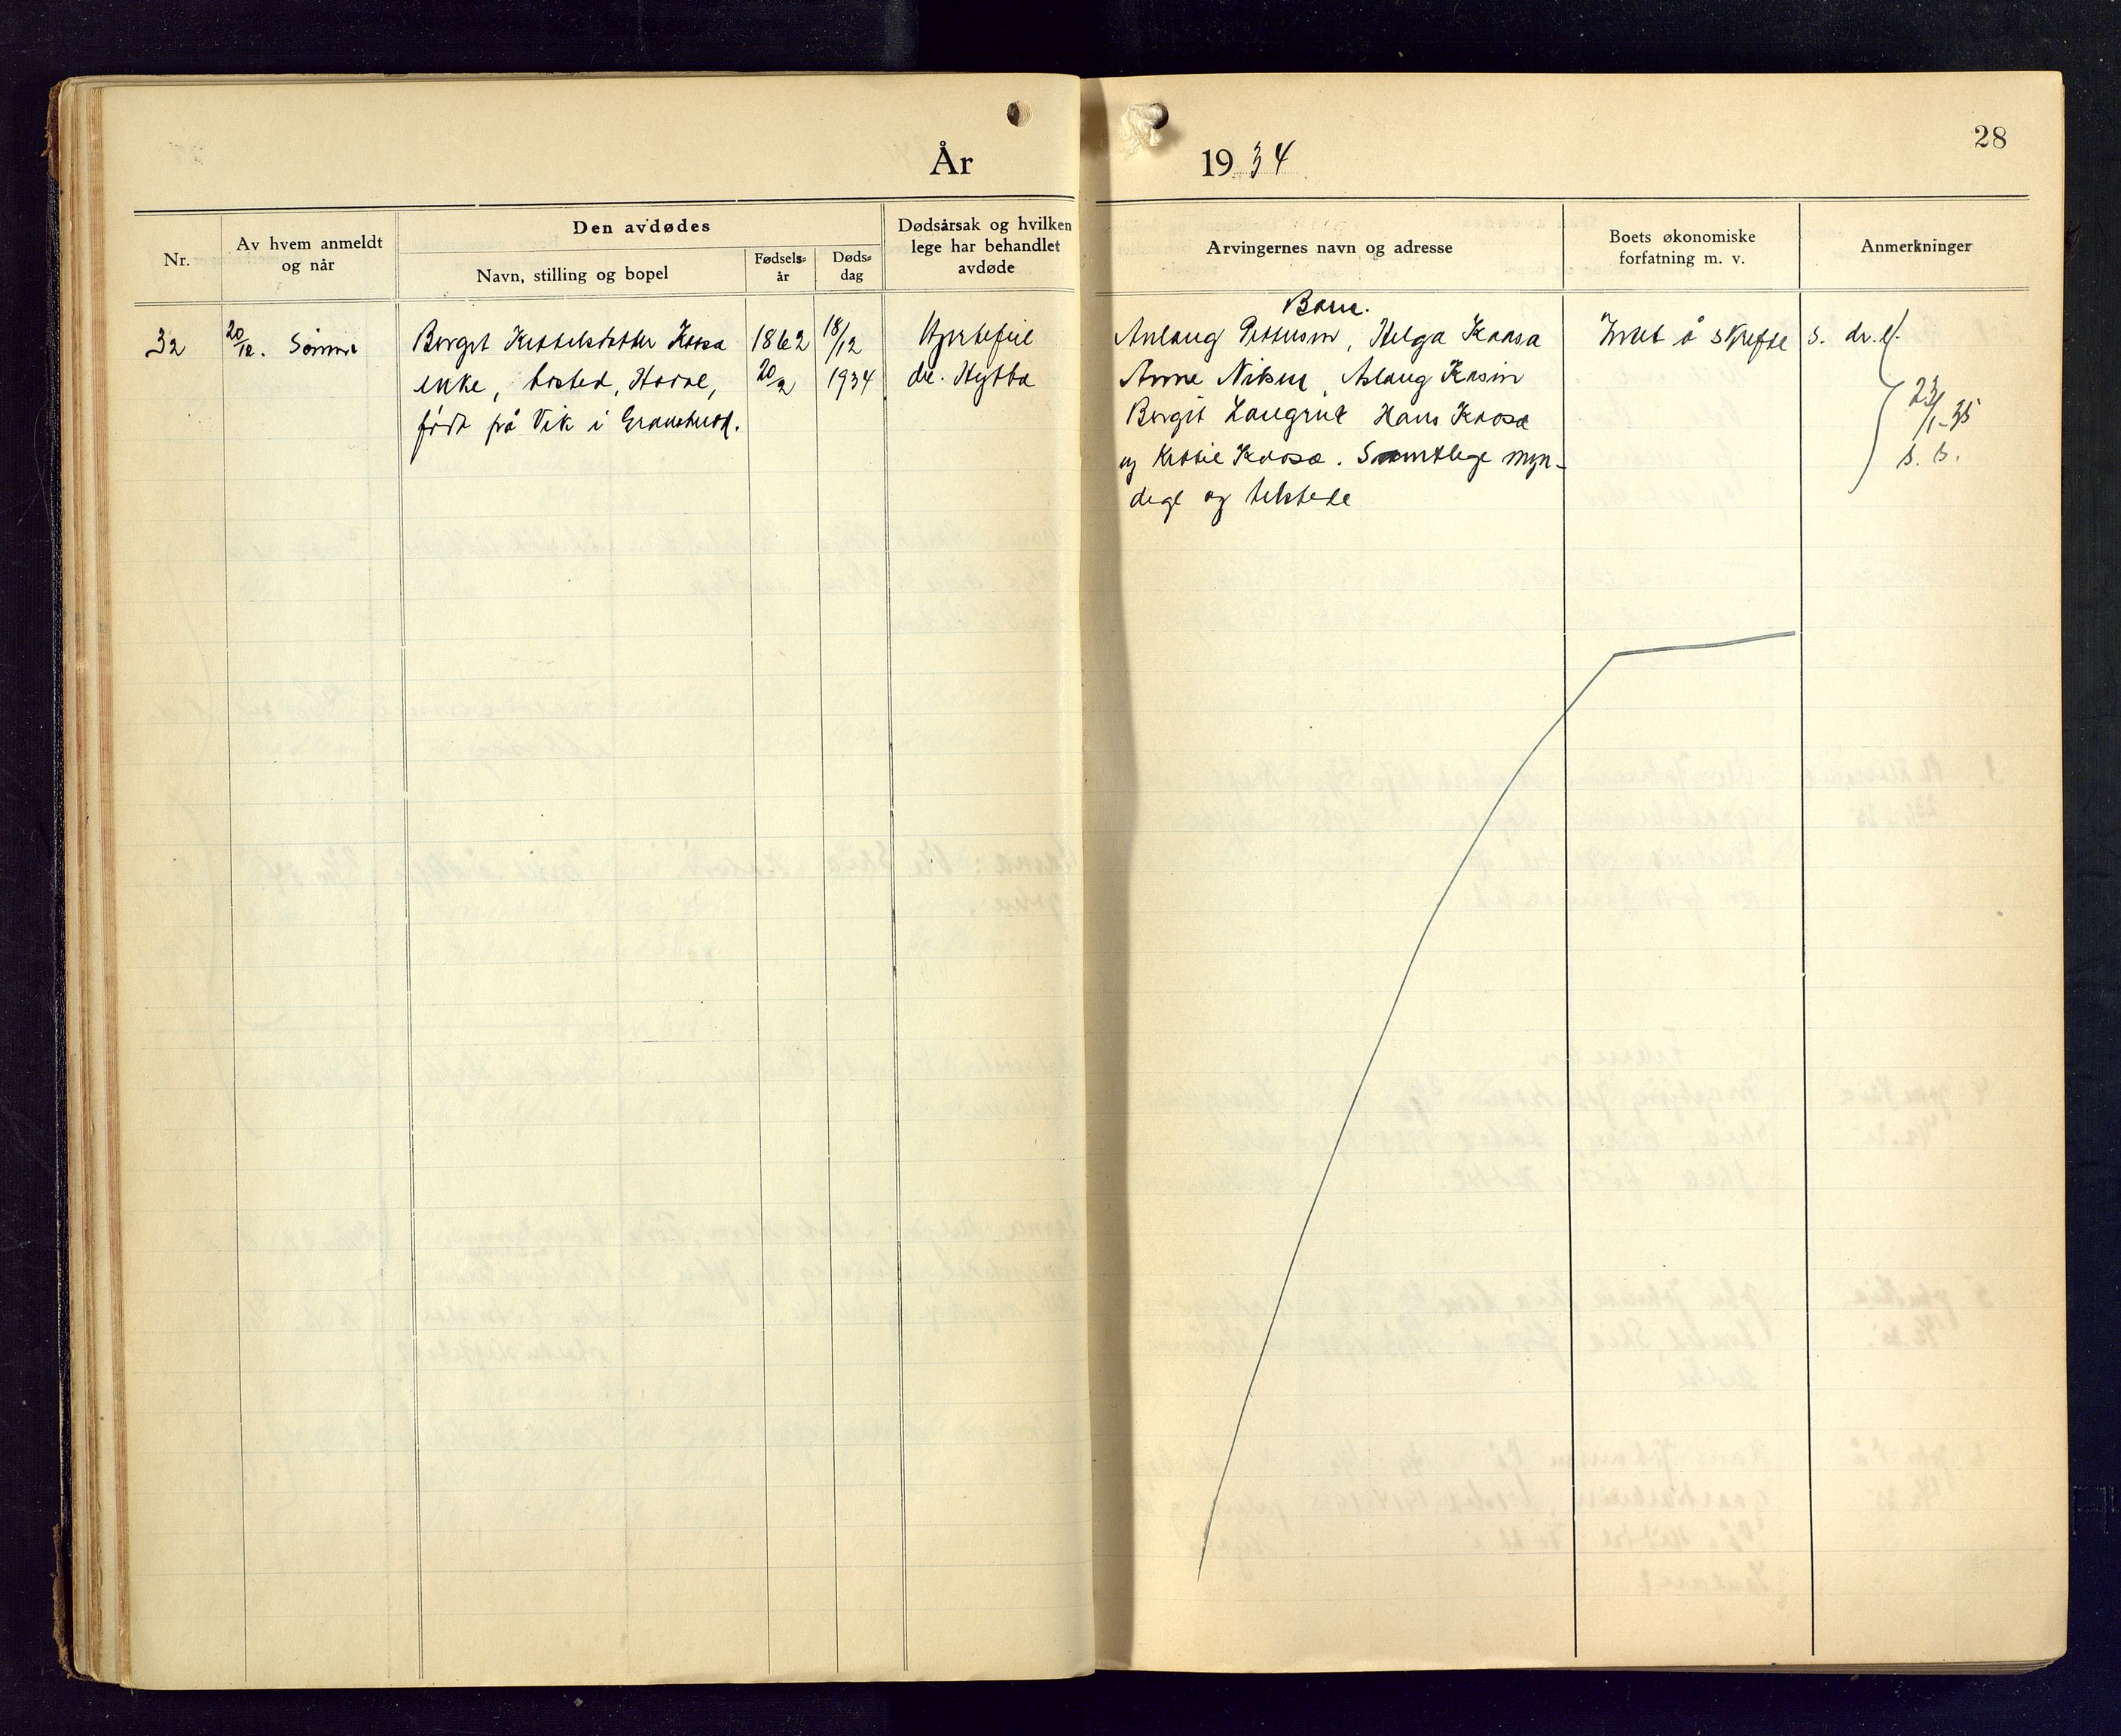 28
År 1934
Nr.
Av hvem anmeldt
og når
Den avdødes
Navn, stilling og bopel
Fødsels-
år
Døds-
dag
Dødsårsak og hvilken
lege har behandlet
avdøde
Arvingernes navn og adresse
Boets økonomiske
forfatning m. v.
Anmerkninger
32
20/12. Sønnen
Borgit Kittelsdotter Kaasa
enke, bosted,
født på Vik i Gransherad.
1862
20/2
18/12
1934
Hjertefeil
dr. Hytta
Born.
Aslaug Pettersen, Helga Kaasa
Anne Nilsen, Aslaug Kasin
Borgit Langrud Hans Kaasa
og Kittil Kaasa. Samtlege myn-
dige og tilstede
Intet å skifte
s. dr. l.
23/1-35
s. b.